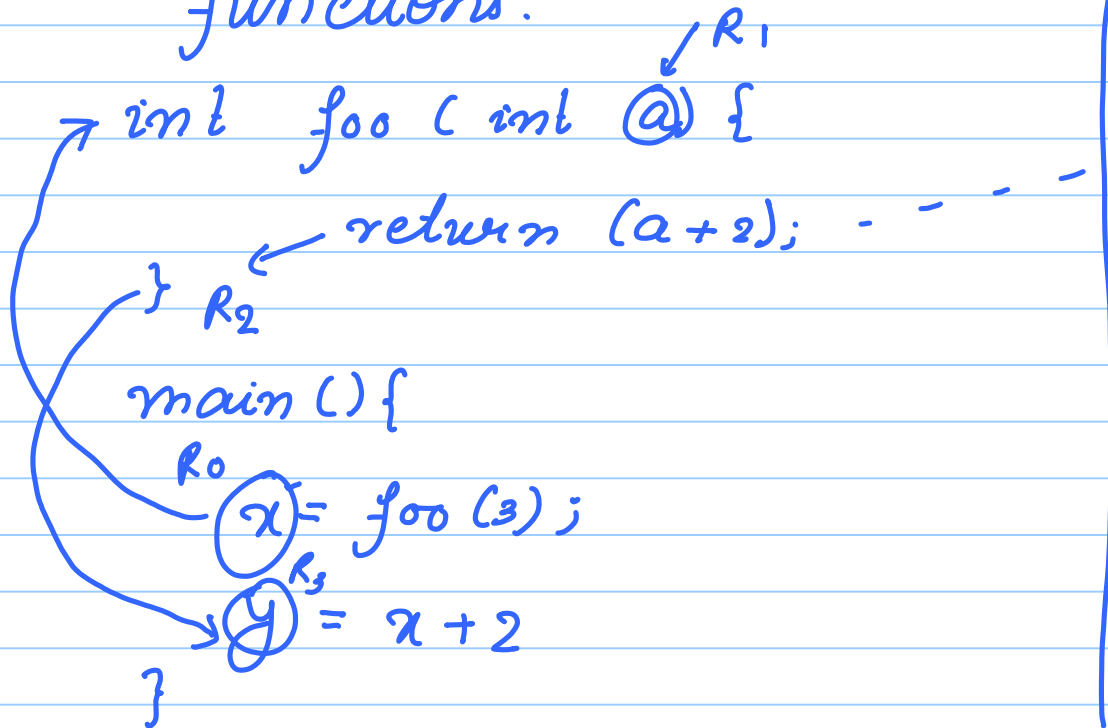 functions.
R1
int foo ( int a) {
return (a+2);
} R2
main () {
R0
x = foo (3) ;
R3
y = x + 2
}